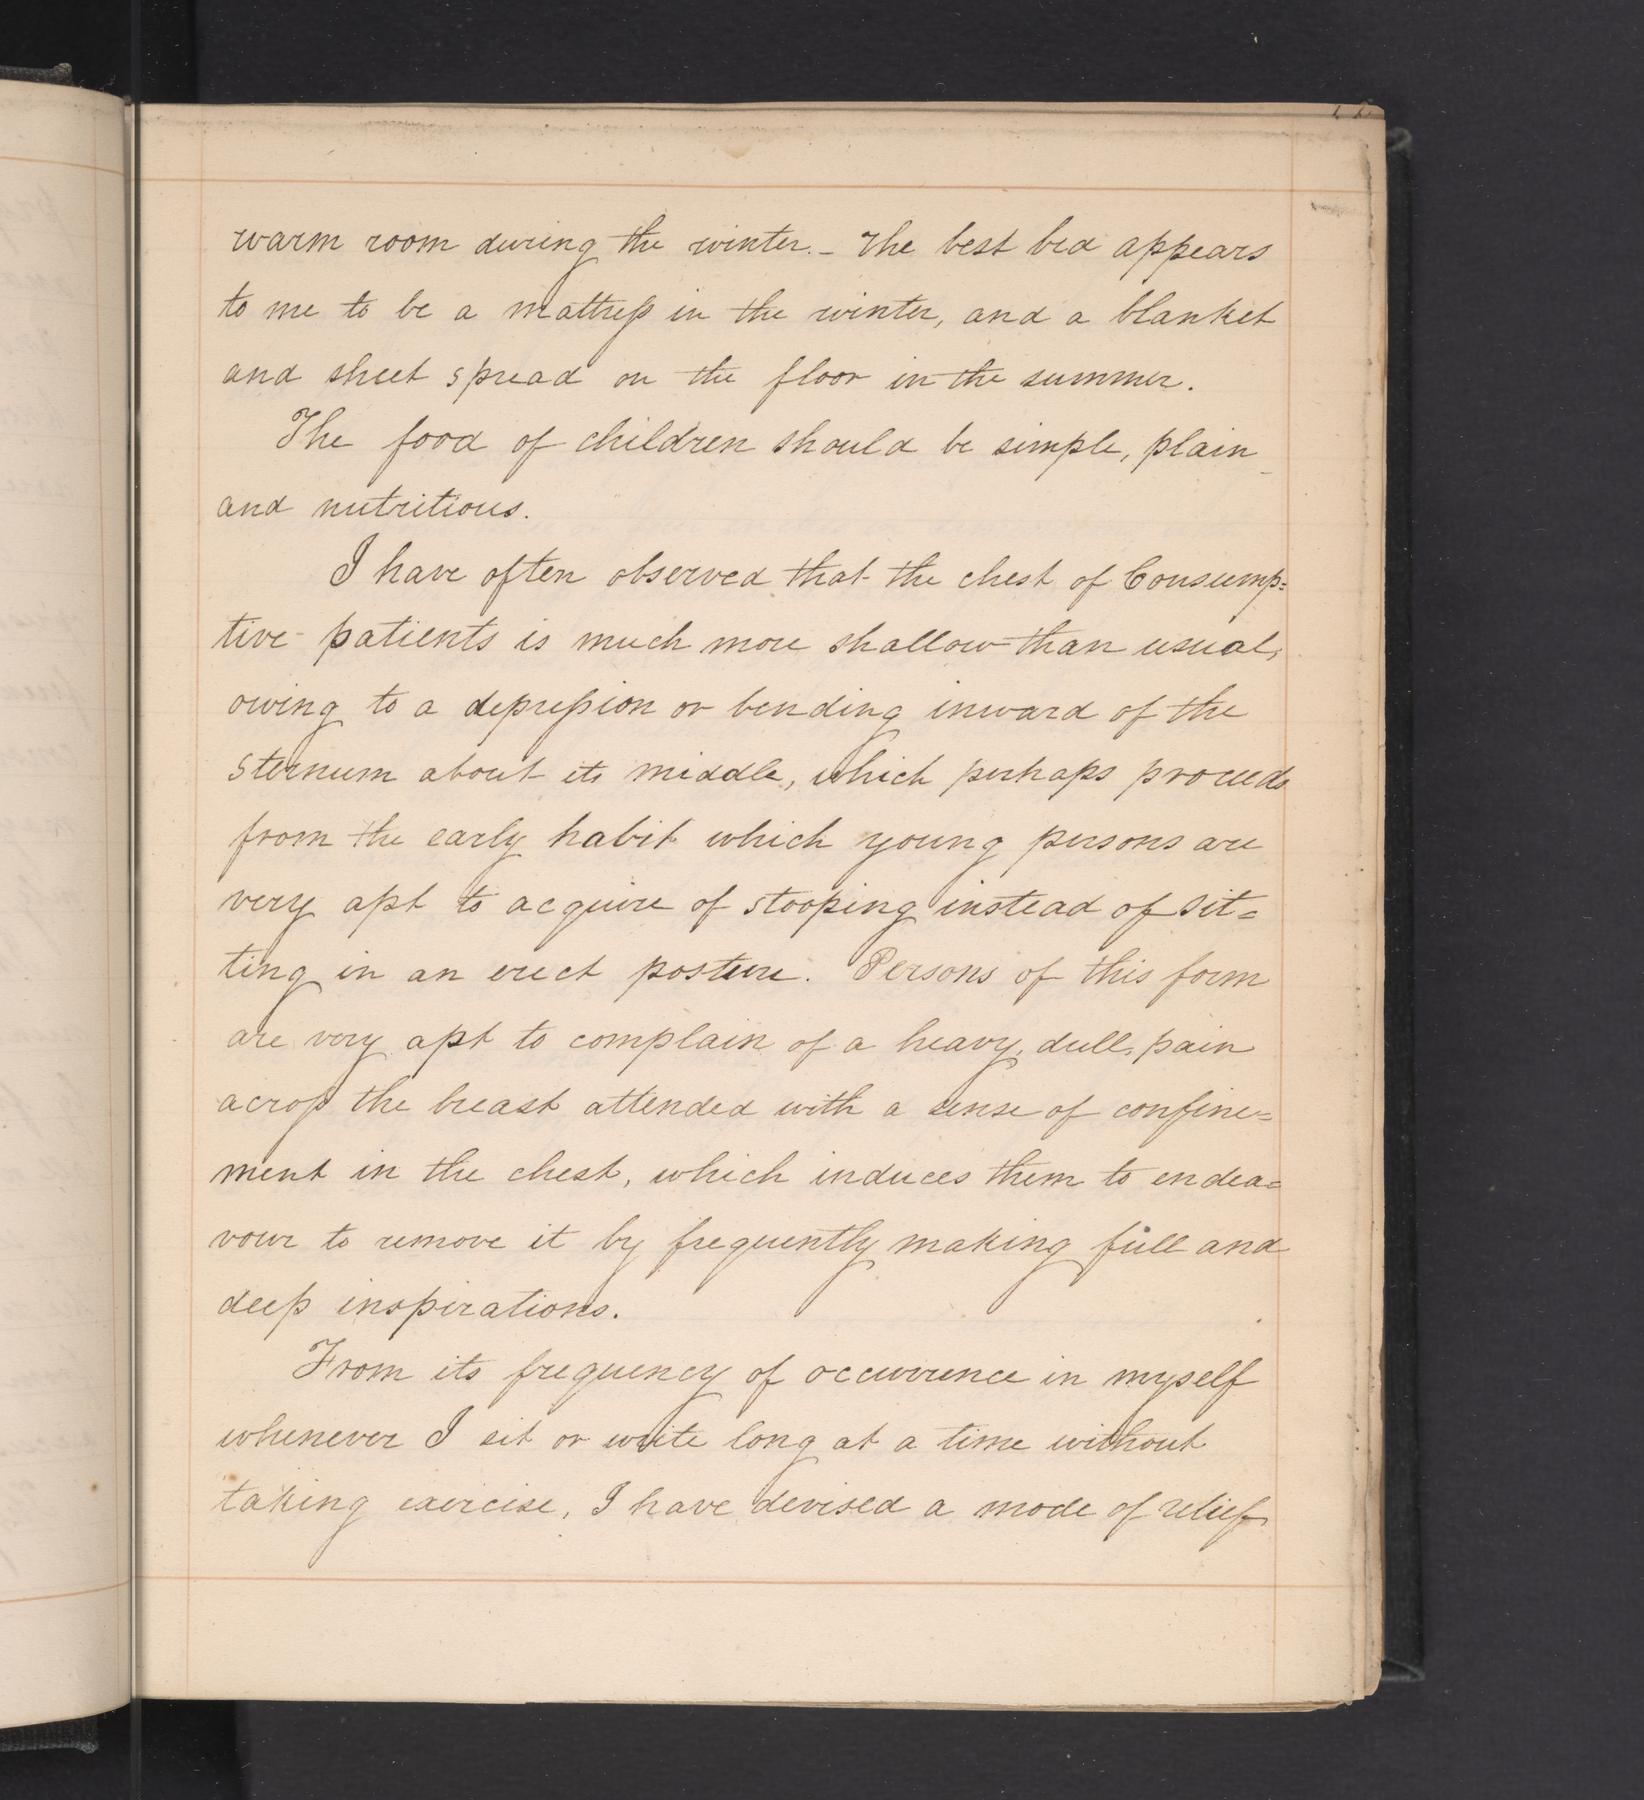 warm room during the winter. – The best bed appears
to me to be a mattress in the winter, and a blanket
and sheet spread on the floor in the summer.
The food of children should be simple, plain
and nutritious.
I have often observed that the chest of Consump=
tive patients is much more shallow than usual,
owing to a depression or bending inward of the
sternum about its middle, which perhaps proceeds
from the early habit which young persons are
very apt to acquire of stooping instead of sit=
ting in an erect posture. Persons of this form
are very apt to complain of a heavy, dull, pain
across the breast attended with a sense of confine=
ment in the chest, which induces them to endea=
vour to remove it by frequently making full and
deep inspirations.
From its frequency of occurrence in myself
whenever I sit or write long at a time without
taking exercise, I have devised a mode of relief